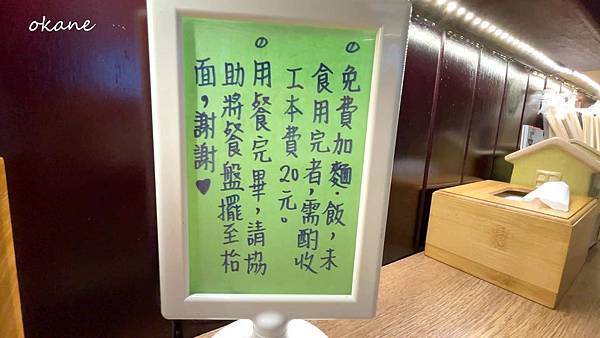 okane
免費加麵·飯,未
食用完者,需酌收
工本費20元。
用餐完畢,請協
助將餐盤擺至枱
面,謝謝♥